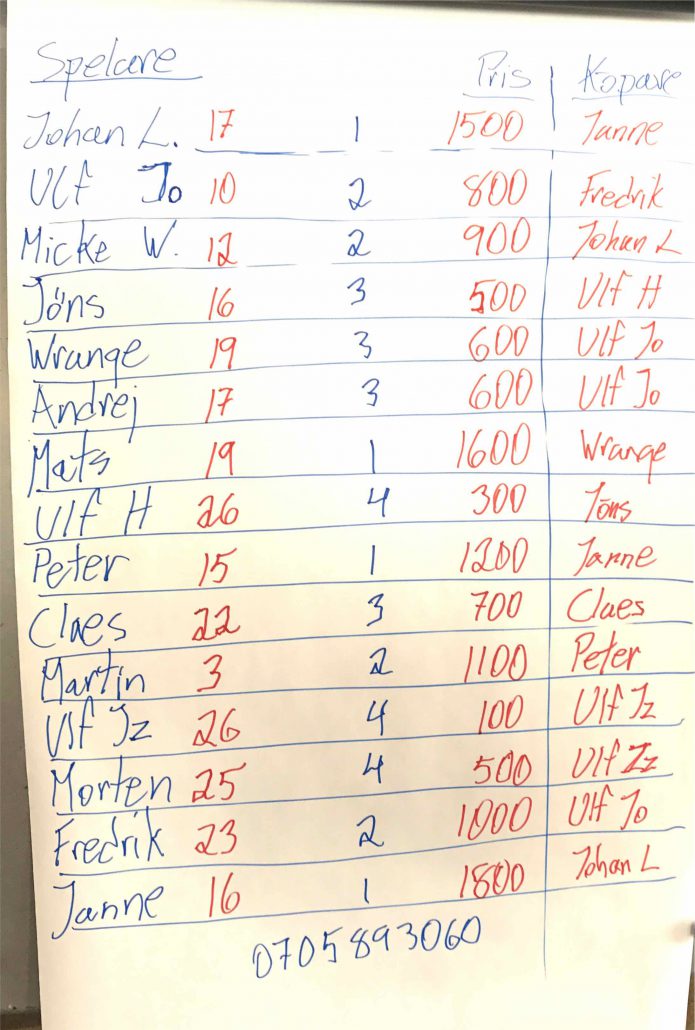 Spelare Pris Köpare
Johan L. 17 1 1500 Janne
Ulf Jo 10 2 800 Fredrik
Micke W. 12 2 900 Johan L
Jöns 16 3 500 Ulf H
Wrange 19 3 600 Ulf Jo
Andrej 17 3 600 Ulf Jo
Mats 19 1 1600 Wrange
Ulf H 26 4 300 Jöns
Peter 15 1 1200 Janne
Claes 22 3 700 Claes
Martin 3 2 1100 Peter
Ulf Iz 26 4 100 Ulf Iz
Morten 25 4 500 Ulf Iz
Fredrik 23 2 1000 Ulf Jo
Janne 16 1 1800 Johan L
0705893060